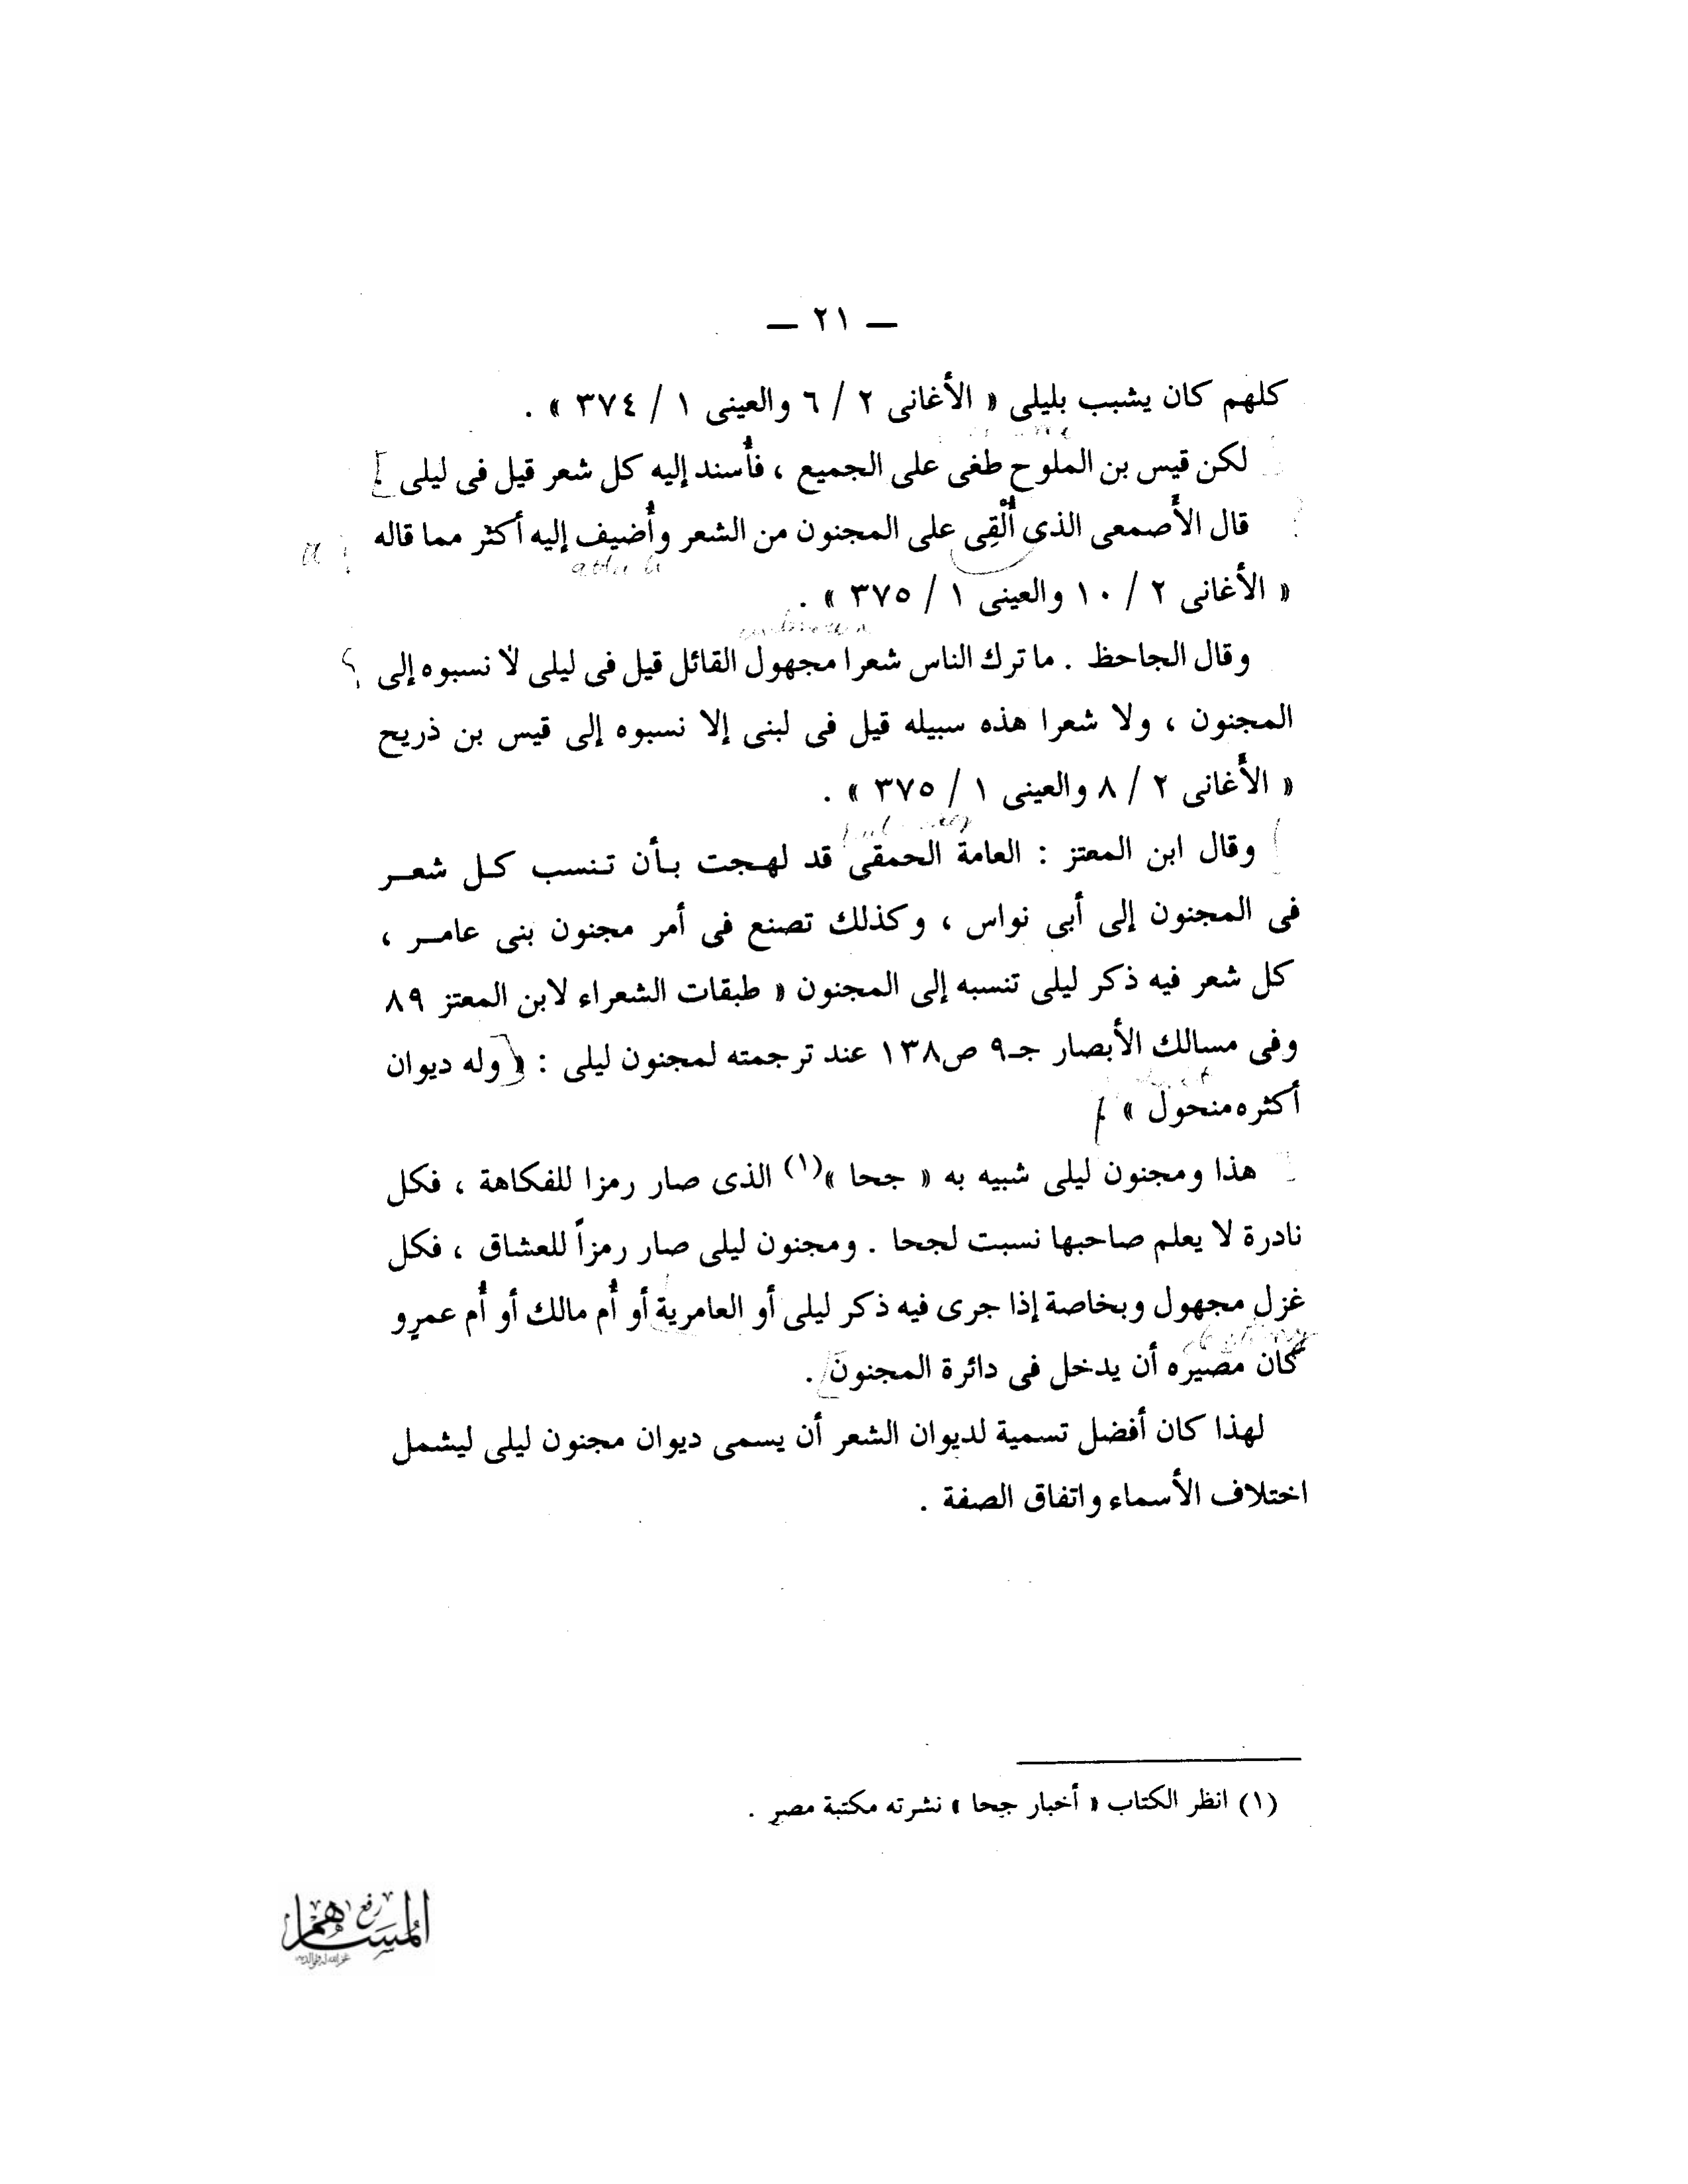 — ٢١ —
كلهم كان يشبب بليلى « الأغانى ٢ / ٦ والعينى ١ / ٣٧٤ » .
لكن قيس بن الملوح طغى على الجميع ، فأُسند إليه كل شعر قيل فى ليلى .
قال الأَصمعى الذى أُلْقِى على المجنون من الشعر وأُضيف إليه أكثر مما قاله
« الأغانى ٢ / ١٠ والعينى ١ / ٣٧٥ » .
وقال الجاحظ . ما ترك الناس شعرا مجهول القائل قيل فى ليلى لا نسبوه إلى
المجنون ، ولا شعرا هذه سبيله قيل فى لبنى إلا نسبوه إلى قيس بن ذريح
« الأَغانى ٢ / ٨ والعينى ١ / ٣٧٥ » .
وقال ابن المعتز : العامة الحمقى قد لهجت بأن تنسب كل شعر
فى المجنون إلى أبى نواس ، وكذلك تصنع فى أمر مجنون بنى عامر ،
كل شعر فيه ذكر ليلى تنسبه إلى المجنون « طبقات الشعراء لابن المعتز ٨٩
وفى مسالك الأبصار جـ٩ ص١٣٨ عند ترجمته لمجنون ليلى : « وله ديوان
أكثره منحول » .
هذا ومجنون ليلى شبيه به « جحا »(١) الذى صار رمزا للفكاهة ، فكل
نادرة لا يعلم صاحبها نسبت لجحا . ومجنون ليلى صار رمزاً للعشاق ، فكل
غزل مجهول وبخاصة إذا جرى فيه ذكر ليلى أو العامرية أو أُم مالك أو أُم عمرو
كان مصيره أن يدخل فى دائرة المجنون .
لهذا كان أفضل تسمية لديوان الشعر أن يسمى ديوان مجنون ليلى ليشمل
اختلاف الأسماء واتفاق الصفة .
(١) انظر الكتاب « أخبار جحا » نشرته مكتبة مصر .
رفع
المساهم